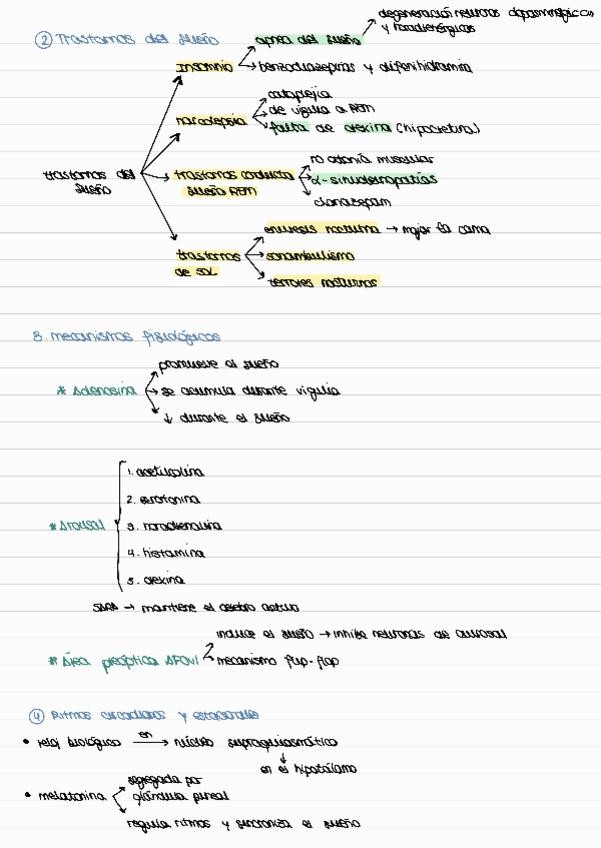 ② Trastornos del sueño
apnea del sueño
degeneración neuronas dopaminérgicas
y noradrenérgicas
insomnio
benzodiazepinas y difenhidramina
narcolepsia
cataplejia
de vigilia a REM
falta de orexina (hipocretina)
trastornos del
sueño
trastornos conducta
sueño REM
no atonía muscular
α-sinucleinopatías
clonazepam
trastornos
de SOL
enuresis nocturna → mojar la cama
sonambulismo
terrores nocturnos
3. mecanismos fisiológicos
* Adenosina
promueve el sueño
se acumula durante vigilia
↓ durante el sueño
* Arousal
1. acetilcolina
2. serotonina
3. noradrenalina
4. histamina
5. orexina
SARA → mantiene el cerebro activo
* Área preóptica APOvl
induce el sueño → inhibe neuronas de arousal
mecanismo flip-flop
④ Ritmos circadianos y estacionales
• reloj biológico en → núcleo supraquiasmático
↓
en el hipotálamo
• melatonina
segregada por
glándula pineal
regula ritmos y sincroniza el sueño